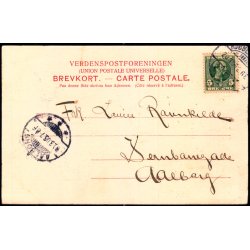 VERDENSPOSTFORENINGEN
(UNION POSTALE UNIVERSELLE)
BREVKORT. — CARTE POSTALE.
Paa denne Side skrives kun Adressen. (Côté réservé à l'adresse)
Frk. Louise Ravnkilde
Jernbanegade
Aalborg